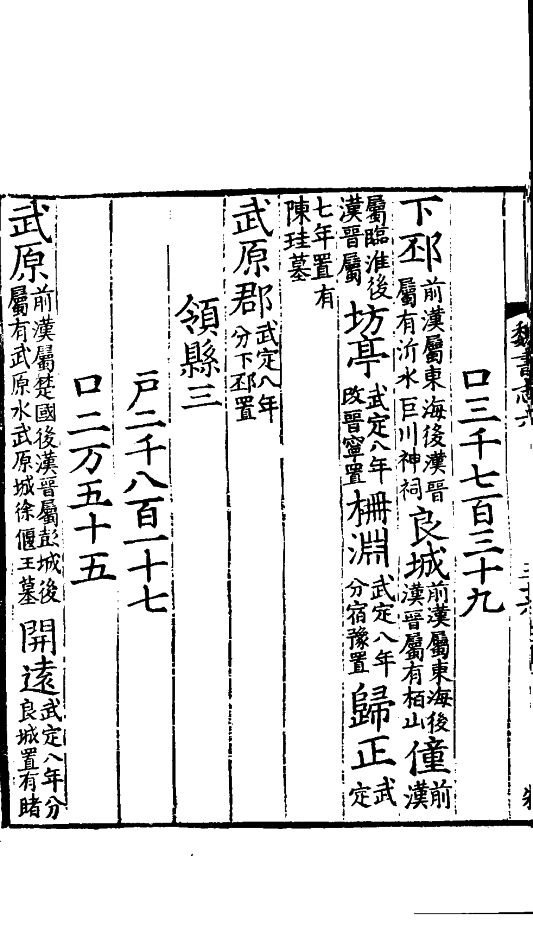 魏書志六
口三千七百三十九
下邳前漢屬東海後漢晉屬有沂水巨川神祠良城前漢屬東海後漢晉屬有栢山僮前漢
屬臨淮後漢晉屬坊亭武定八年改晉寧置柵淵武定八年分宿豫置歸正武定
七年置有陳珪墓
武原郡武定八年分下邳置
領縣三
戸二千八百一十七
口二万五十五
武原前漢屬楚國後漢晉屬彭城後屬有武原水武原城徐偃王墓開遠武定八年分良城置有睹